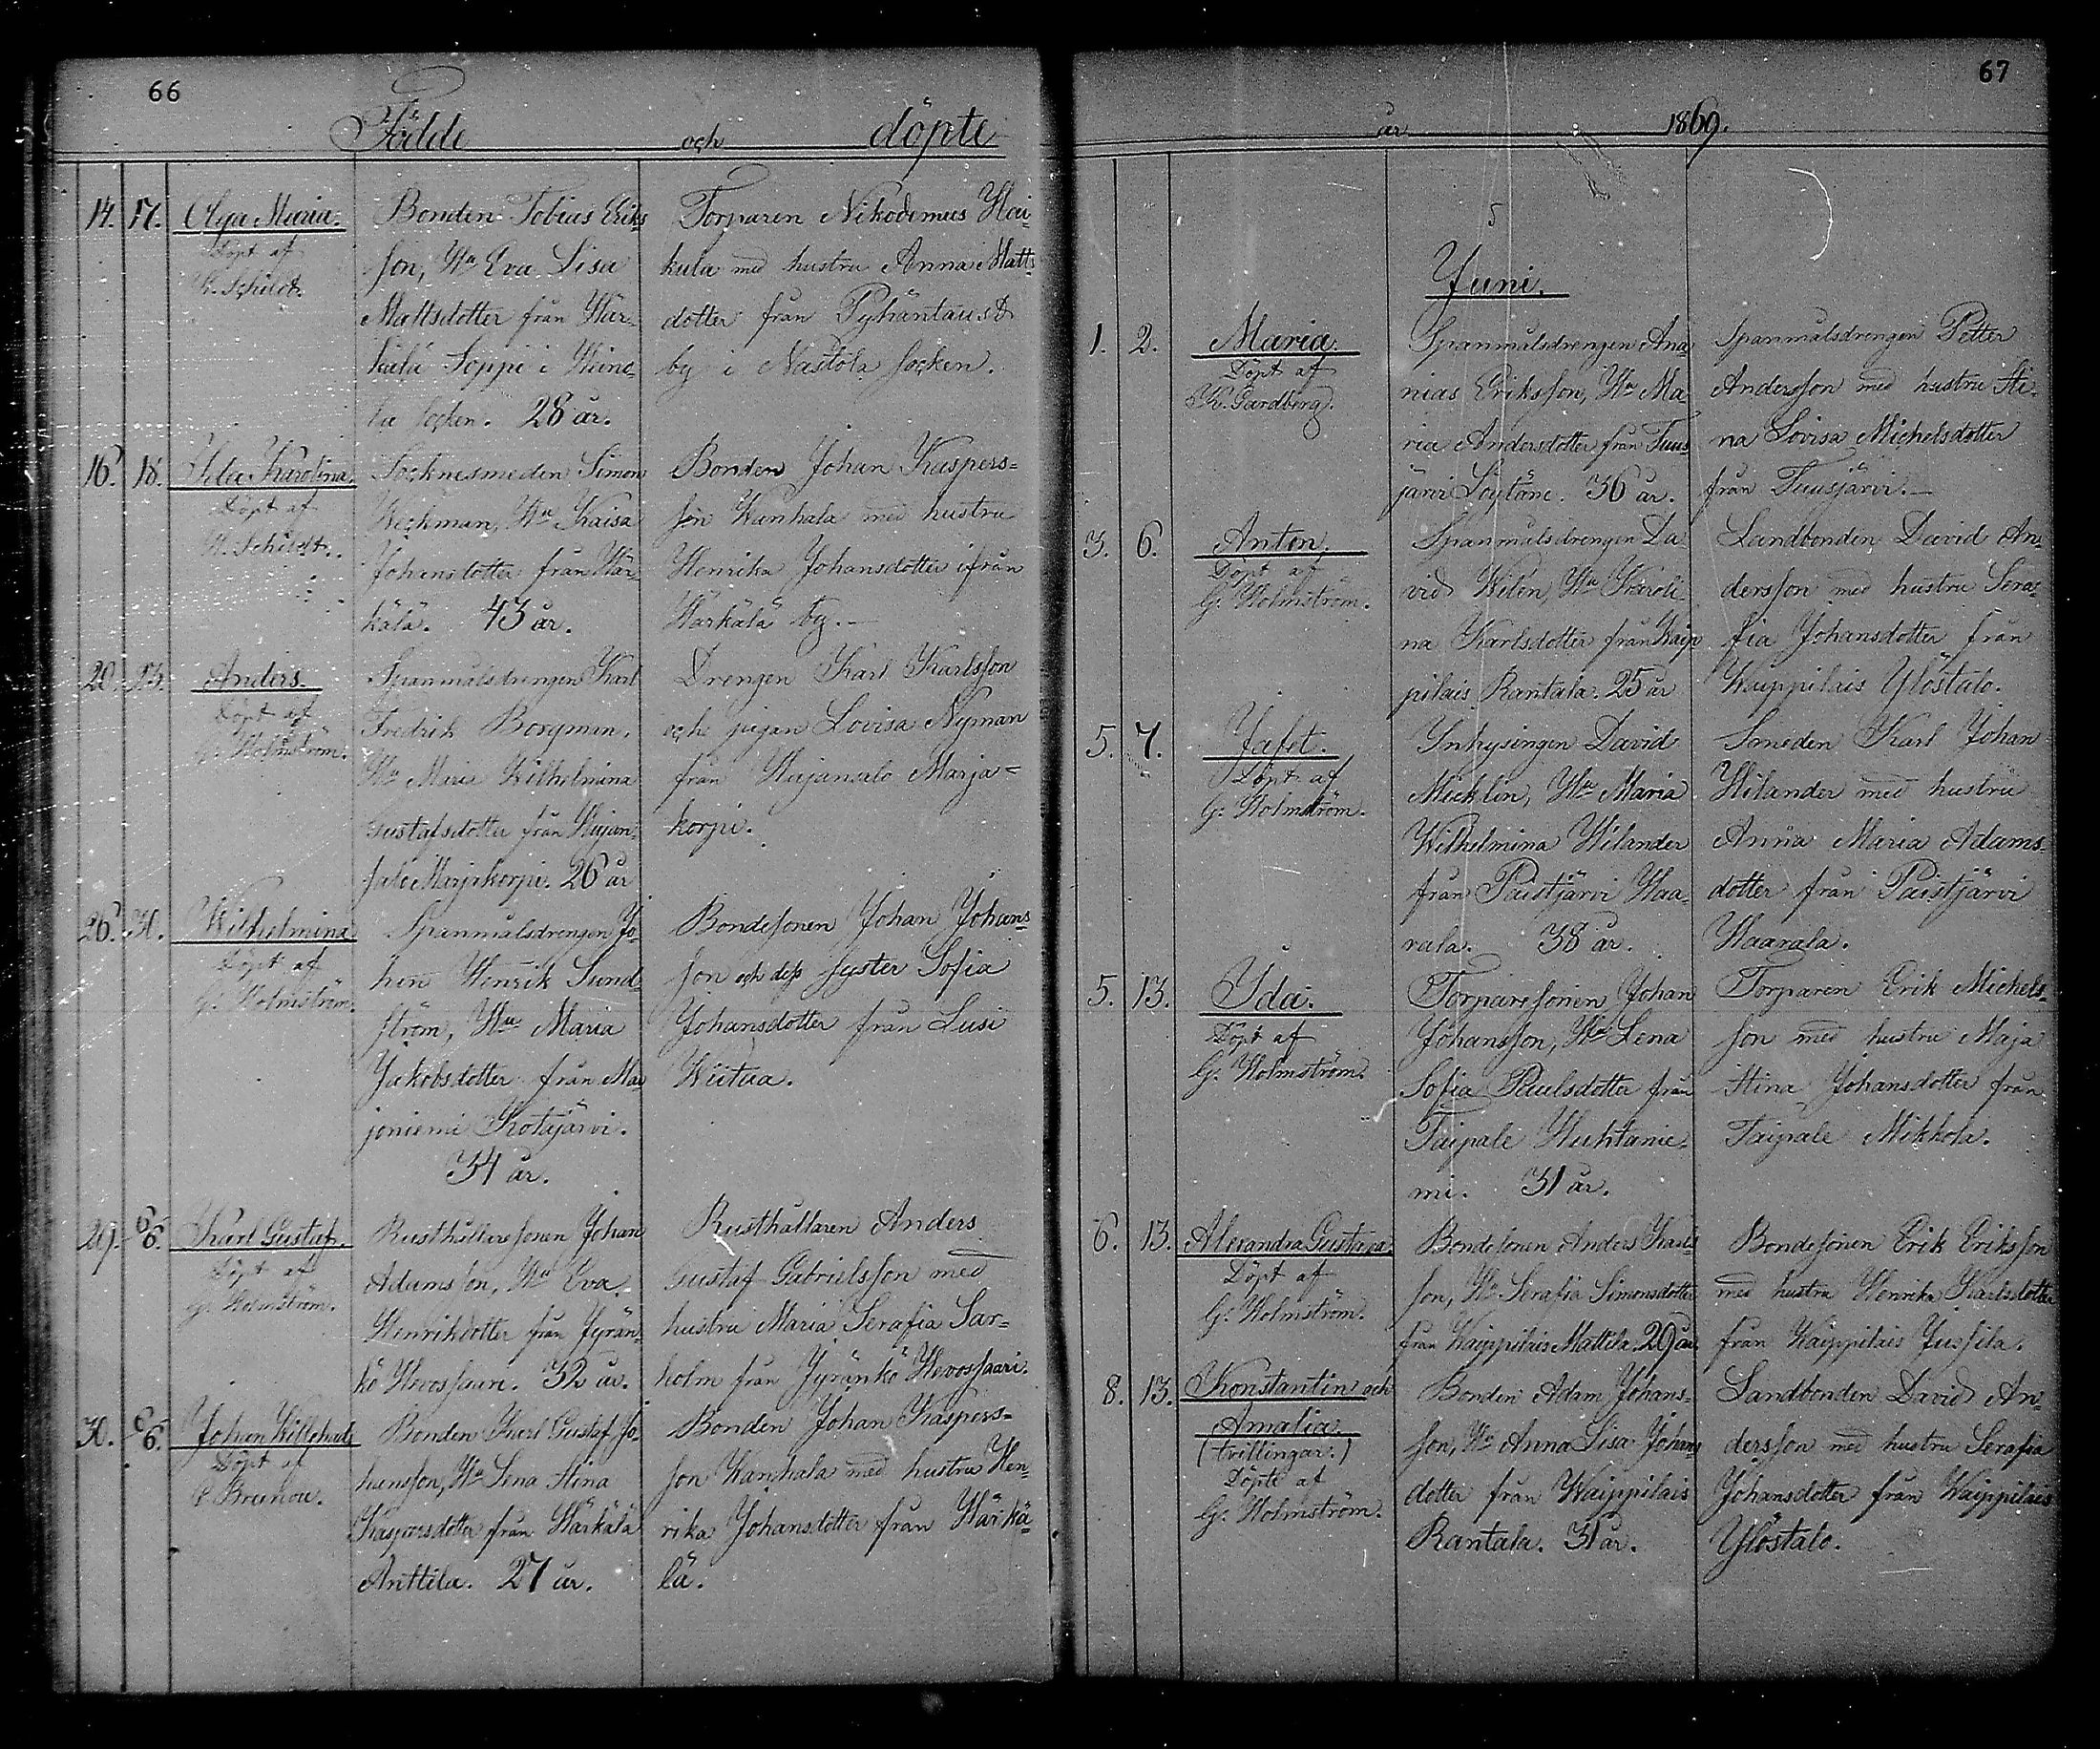 66
Födde och döpte
14. 17. Olga Maria.
Döpt af
K. Schildt.
Bonden Tobias Eriks
son, Hu Eva Lisa
Mattsdotter från Här-
kälä Seppi i Heino-
la socken. 28 år.
Torparen Nikodemus Hai-
kula med hustru Anna Matts
dotter från Pyhäntausta
by i Nastola socken.
16. 18. Ida Karolina.
Döpt af
K. Schildt.
Socknesmeden Simon
Weckman, Hu Kaisa
Johansdotter från Här-
kälä. 43 år.
Bonden Johan Kaspers=
son Wanhala med hustru
Henrika Johansdotter ifrån
Härkälä by.—
20. 23. Anders.
Döpt af
G. Holmström.
Spanmålsdrengen Karl
Fredrik Borgman,
Hu Maria Wilhelmina
Gustafsdotter från Kujan-
salo Marjakorpi. 26 år
Drengen Karl Karlsson
och pigan Lovisa Nyman
från Kujansalo Marja=
korpi.
26. 30. Wilhelmina
Döpt af
G. Holmström.
Spanmålsdrengen Jo-
han Henrik Sund-
ström, Hu Maria
Jakobsdotter från Mar
joniemi Kotajärvi.
34 år.
Bondesonen Johan Johans
son och dess syster Sofia
Johansdotter från Lusi
Wiitaa.
29. 6/6. Karl Gustaf.
Döpt af
G. Holmström.
Rusthållaresonen Johan
Adamsson, Hu Eva
Henriksdotter från Jyrän-
kö Hevossaari. 32 år.
Rusthållaren Anders
Gustaf Gabrielsson med
hustru Maria Serafia Sar=
holm från Jyränkö Hevossaari.
30. 6/6. Johan Willehad
Döpt af
Brunou.
Bonden Karl Gustaf Jo-
hansson, Hu Lena Stina
Kaspersdotter från Härkälä
Anttila. 27 år.
Bonden Johan Kaspers=
son Wanhala med hustru Hen-
rika Johansdotter från Härkä-
lä.
67
år 1869.
Juni.
1. 2. Maria.
Döpt af
K. Gardberg.
Spanmålsdrengen Ana
nias Eriksson, Hu Ma
ria Andersdotter från Tuus
järvi Löytäne. 36 år.
Spanmålsdrengen Petter
Andersson med hustru Sti-
na Lovisa Michelsdotter
från Tuusjärvi.—
3. 6. Anton.
Döpt af
G. Holmström.
Spanmålsdrengen Da-
vid Wilen, Hu Karoli
na Karlsdotter från Waip
pilais Rantala. 25 år
Landbonden David An-
dersson med hustru Sera-
fia Johansdotter från
Waippilais Ylöstalo.
5. 7. Jafet.
Döpt af
G. Holmström.
Inhysingen David
Micklin, Hu Maria
Wilhelmina Wilander
från Paistjärvi Haa-
rala. 38 år.
Smeden Karl Johan
Wilander med hustru
Anna Maria Adams-
dotter från Paistjärvi
Haarala.
5. 13. Ida.
Döpt af
G. Holmström.
Torparesonen Johan
Johansson, Hu Lena
Sofia Paulsdotter från
Taipale Huhtanie-
mi. 31 år.
Torparen Erik Michels-
son med hustru Maja
Stina Johansdotter från
Taipale Mikkola.
6. 13. Alexandra Gustava.
Döpt af
G. Holmström.
Bondesonen Anders Karls
son, Hu Serafia Simonsdotter
från Waippilais Mattila. 29 år.
Bondesonen Erik Eriksson
med hustru Henrika Karlsdotter
från Waippilais Jussila.
8. 13. Konstantin och
Amalia.
(tvillingar.)
Döpte af
G. Holmström.
Bonden Adam Johans-
son, Hu Anna Lisa Johans
dotter från Waippilais
Rantala. 31 år.
Landbonden David An-
dersson med hustru Serafia
Johansdotter från Waippilais
Ylöstalo.